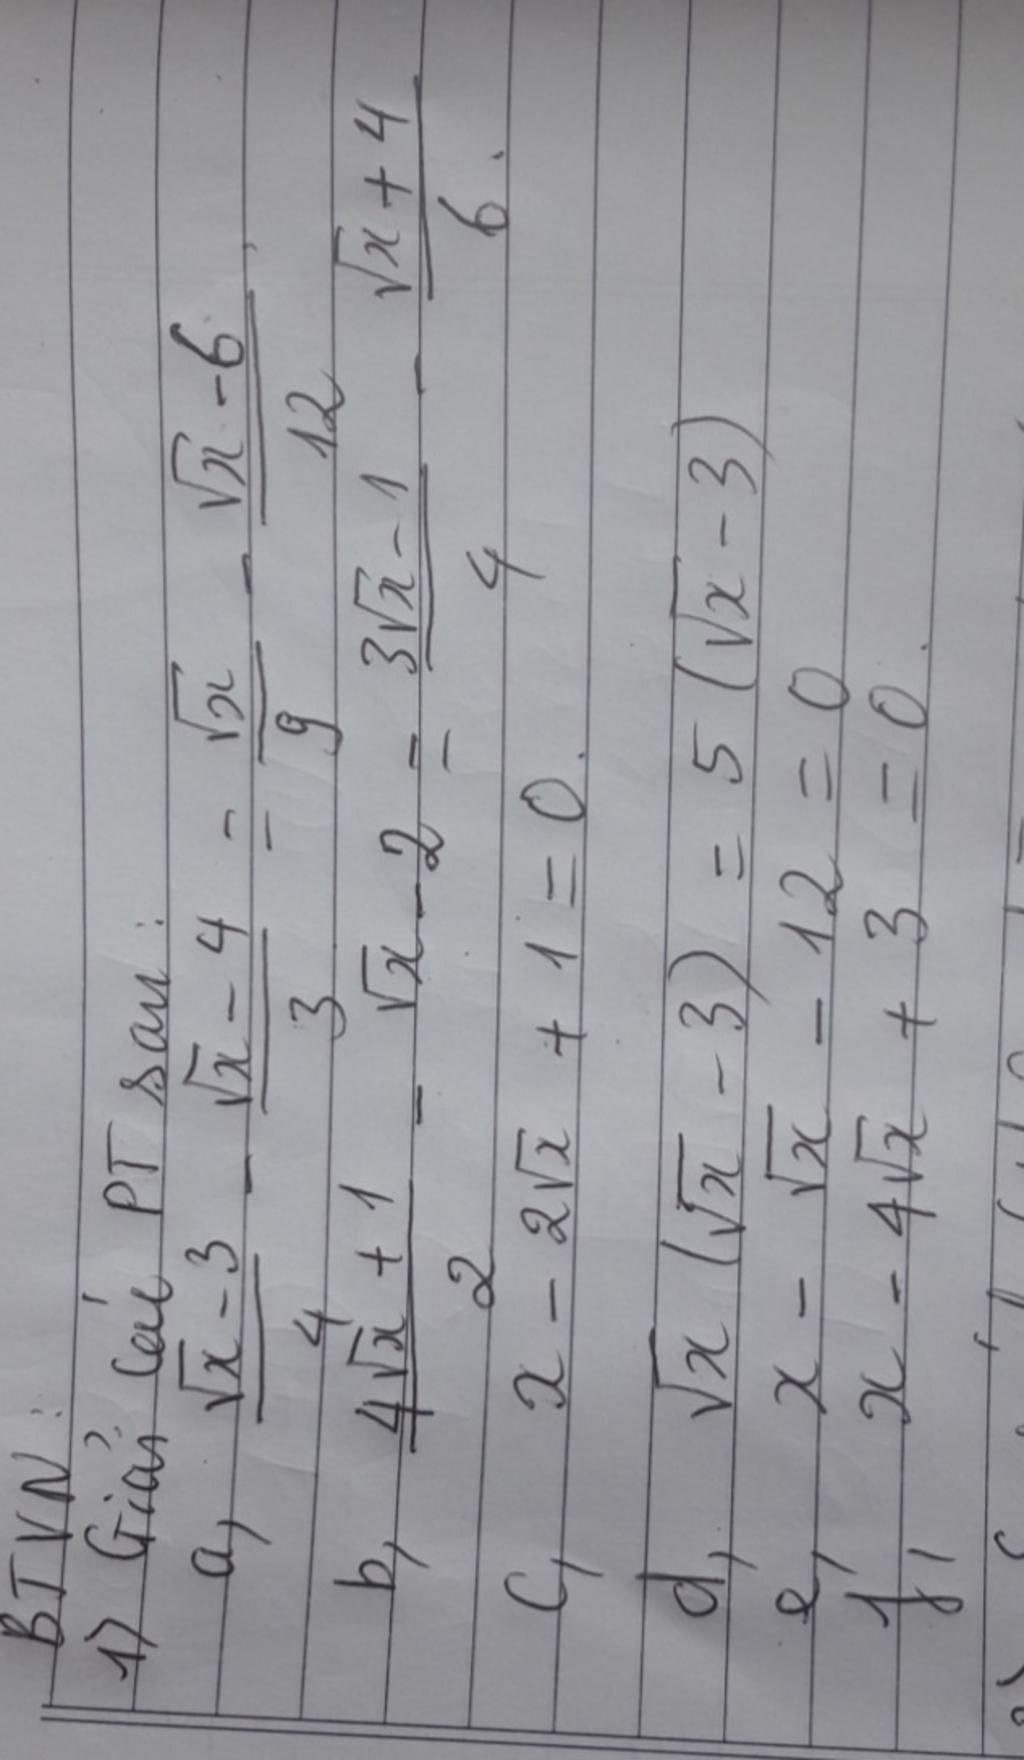 BTVN:
1) Giải các PT sau:
a, (√x - 3)/4 - (√x - 4)/3 = √x/9 - (√x - 6)/12
b, (4√x + 1)/2 - √x - 2 = (3√x - 1)/4 - (√x + 4)/6.
c, x - 2√x + 1 = 0.
d, √x (√x - 3) = 5 (√x - 3)
e, x - √x - 12 = 0
f, x - 4√x + 3 = 0.